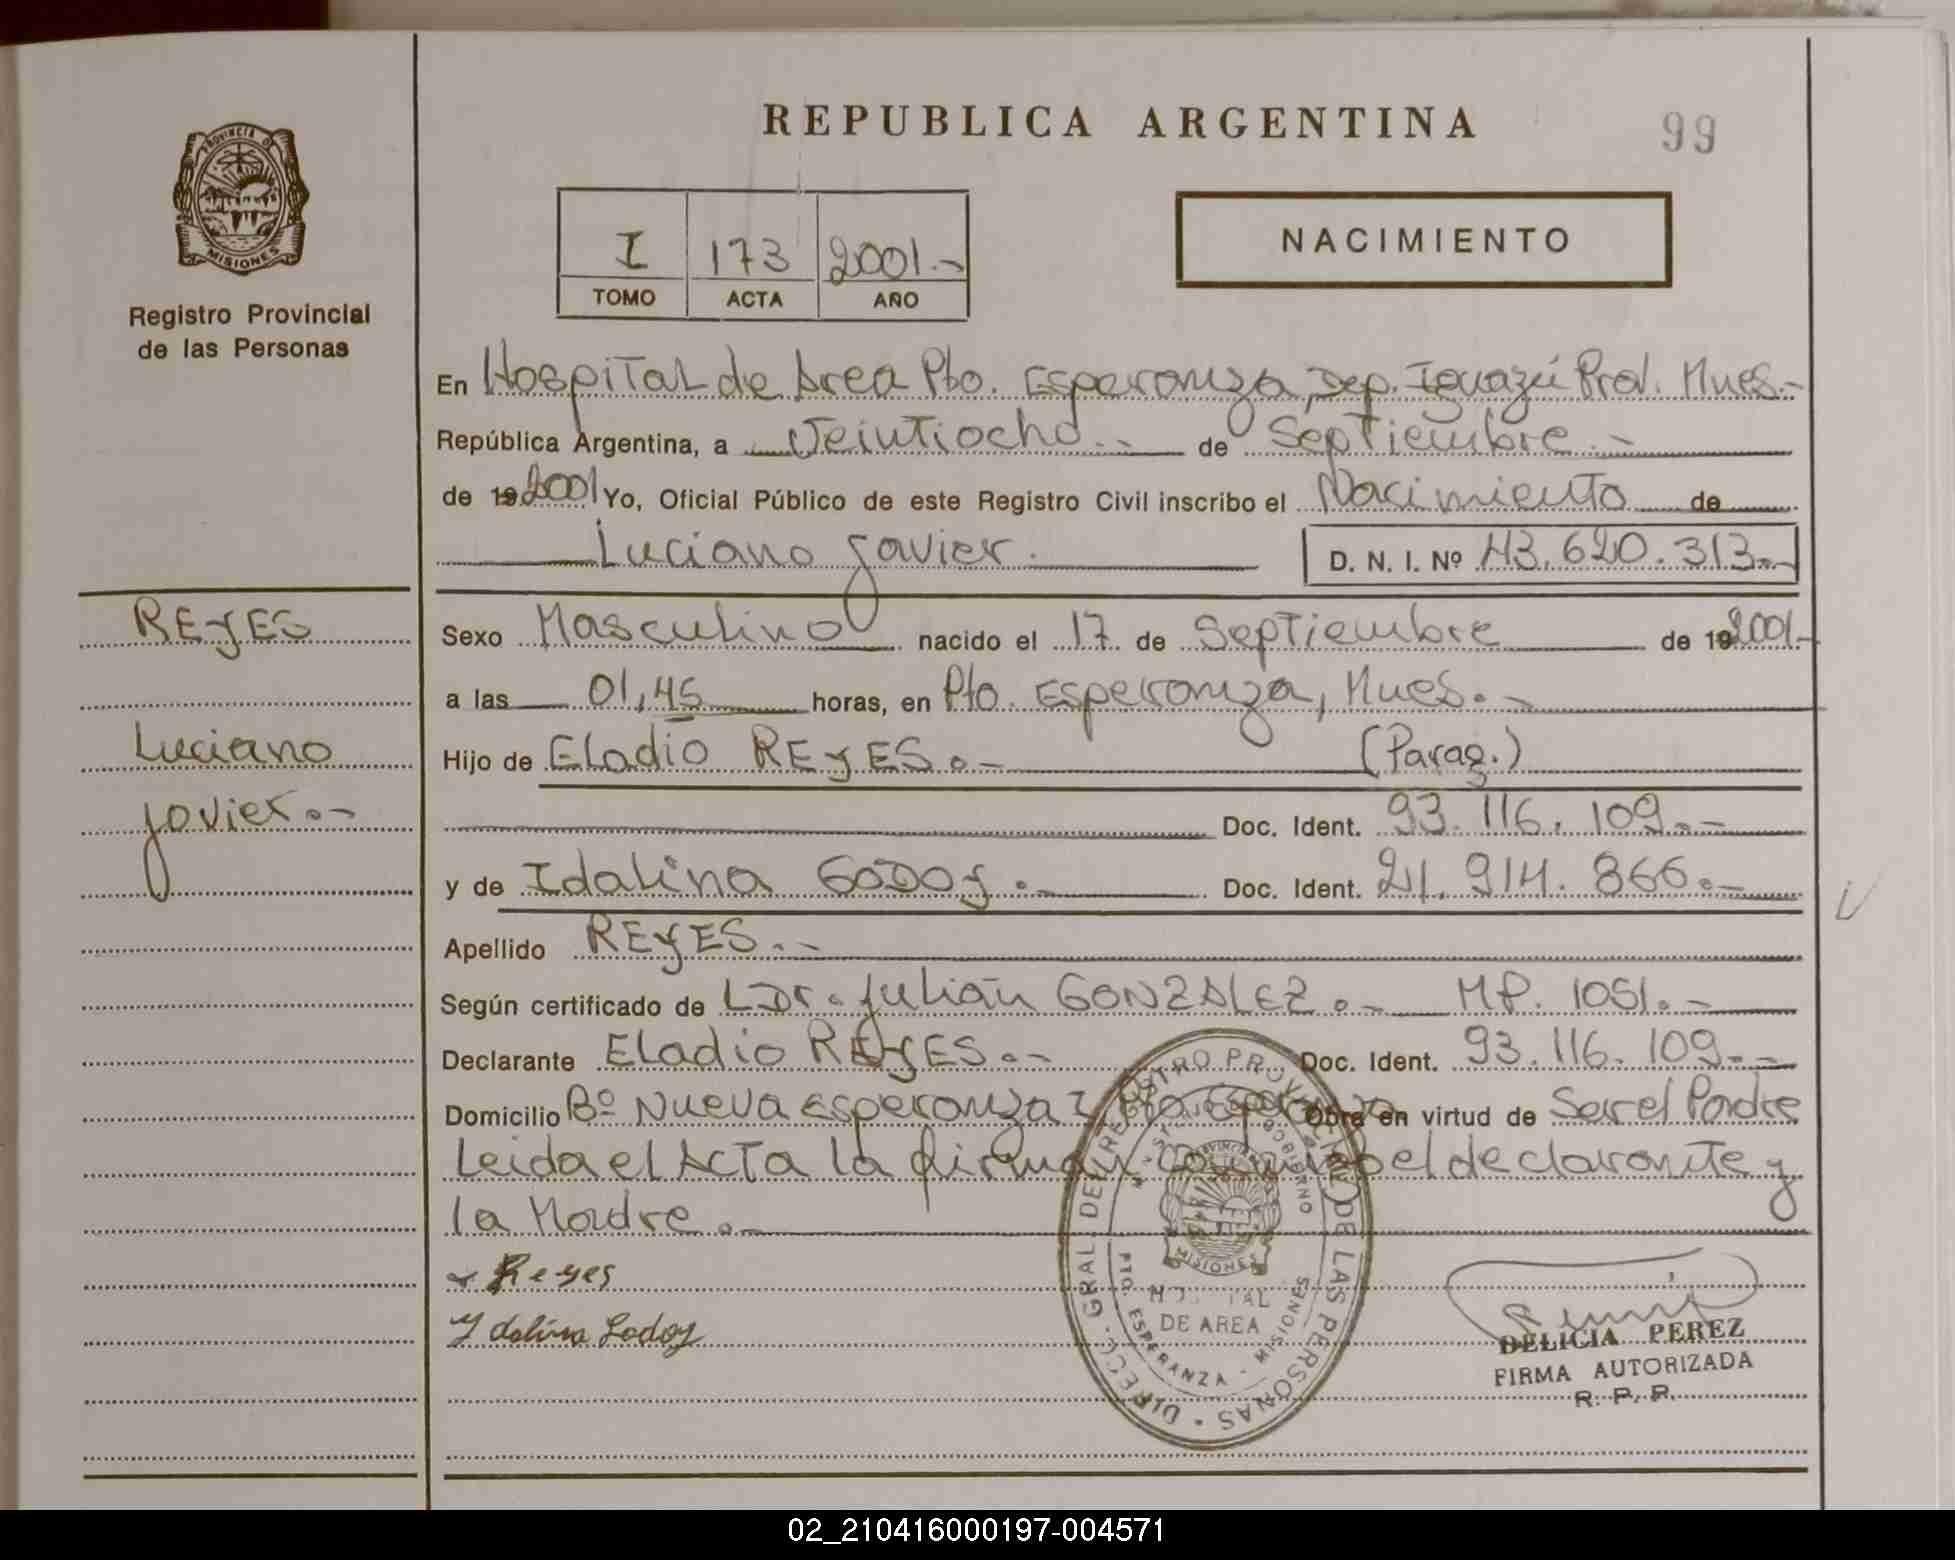 REPUBLICA ARGENTINA
99
PROVINCIA DE
MISIONES
Registro Provincial
de las Personas
I 173 2001.-
TOMO ACTA AÑO
NACIMIENTO
En Hospital de Area Pto. Esperanza, Dep. Iguazú Prov. Mnes.-
República Argentina, a Veintiocho.- de Septiembre.-
de 19 2001 Yo, Oficial Público de este Registro Civil inscribo el Nacimiento de
Luciano Javier.
D. N. I. Nº 43.620.313.-
REYES
Luciano
Javier.-
Sexo Masculino nacido el 17 de Septiembre de 19 2001.-
a las 01,45 horas, en Pto. Esperanza, Mnes.-
Hijo de Eladio REYES.- (Parag.)
Doc. Ident. 93.116.109.-
y de Idalina GODOY.- Doc. Ident. 21.914.866.-
Apellido REYES.-
Según certificado de Dr. Julián GONZALEZ.- MP. 1051.-
Declarante Eladio REYES.- Doc. Ident. 93.116.109.-
Domicilio Bº Nueva Esperanza Pto Esperanza Obra en virtud de Ser el Padre
Leida el Acta la firman conmigo el declarante y
la Madre.-
Reyes
Ydalina Godoy
DIRECC. GRAL. DEL REGISTRO PROVINCIAL DE LAS PERSONAS
MISIONES
HOSPITAL
DE AREA
PTO. ESPERANZA - MISIONES
DELICIA PEREZ
FIRMA AUTORIZADA
R. P. P.
02_210416000197-004571